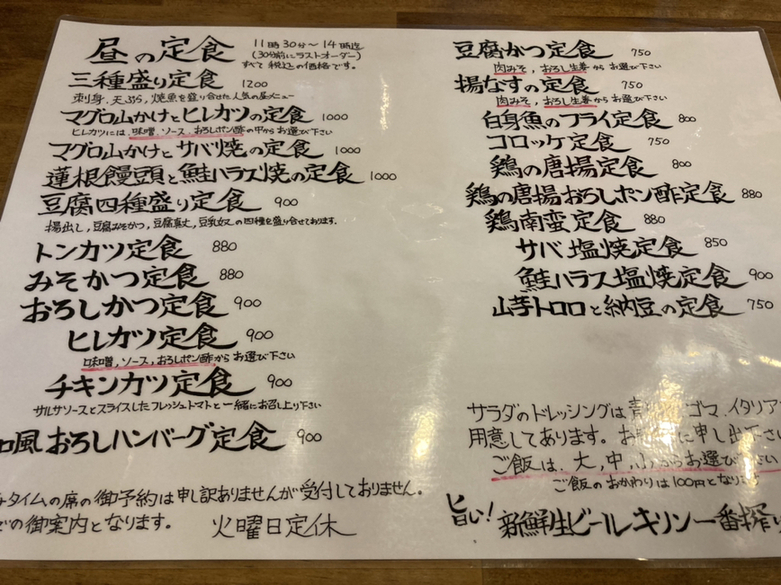 昼の定食 11時30分〜14時迄
(30分前にラストオーダー)
すべて税込の価格です。
三種盛り定食 1200
刺身、天ぷら、焼魚を盛り合せた人気の昼メニュー
マグロ山かけとヒレカツの定食 1000
ヒレカツには、味噌、ソース、おろしポン酢の中からお選び下さい
マグロ山かけとサバ焼の定食 1000
蓮根饅頭と鮭ハラス焼の定食 1000
豆腐四種盛り定食 900
揚出し、豆腐みそかつ、豆腐真丈、豆乳奴の四種を盛り合せております。
トンカツ定食 880
みそかつ定食 880
おろしかつ定食 900
ヒレカツ定食 900
味噌、ソース、おろしポン酢からお選び下さい
チキンカツ定食 900
サルサソースとスライスしたフレッシュトマトと一緒にお召し上り下さい
風おろしハンバーグ定食 900
タイムの席の御予約は申し訳ありませんが受付しておりません。
の御案内となります。 火曜日定休
豆腐かつ定食 750
肉みそ、おろし生姜からお選び下さい
揚なすの定食 750
肉みそ、おろし生姜からお選び下さい
白身魚のフライ定食 800
コロッケ定食 750
鶏の唐揚定食 800
鶏の唐揚おろしポン酢定食 880
鶏南蛮定食 880
サバ塩焼定食 850
鮭ハラス塩焼定食 900
山芋トロロと納豆の定食 750
サラダのドレッシングは青 ゴマ、イタリア
用意してあります。お に申し出下さい
ご飯は、大、中、小からお選び下さい
ご飯のおかわりは100円とな
旨い! 新鮮生ビールキリン一番搾り